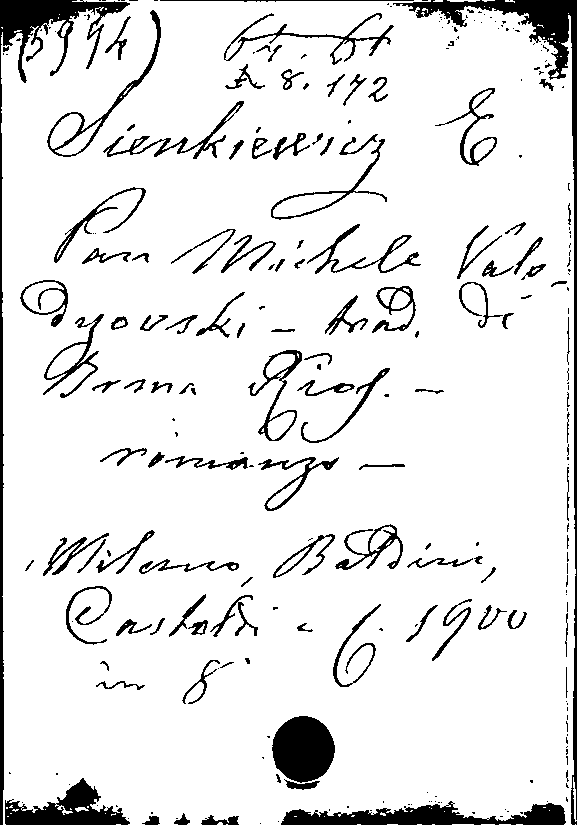 (5994) 64. 61
A 8. 172
Sienkiewicz E.
Pan Michele Valo-
dyovski - trad. di
Irma Rios. -
romanzo -
Milano, Baldini,
Castoldi e C. 1900
in 8°